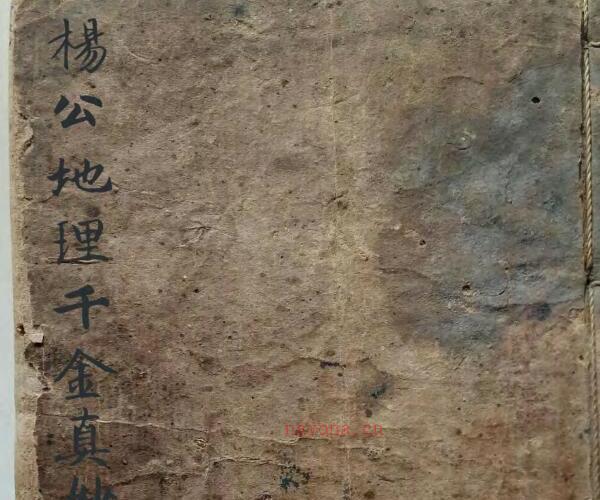 楊公地理千金真
nayona.cn